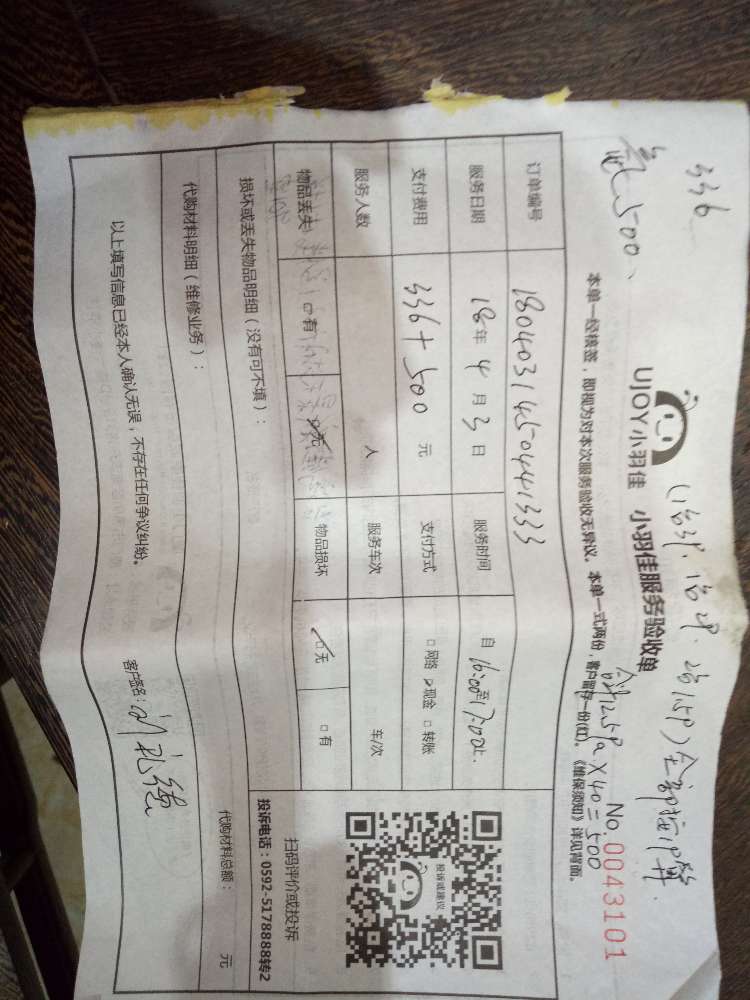 336
500、
UJOY小羽佳 小羽佳服务验收单
No.0043101
本单一经核签，即视为对本次服务验收无异议。本单一式两份，客户留存一份(红)。《维保须知》详见背面。
X40=500
订单编号 18040314504441333
服务日期 18年4月3日 服务时间 自16:00至17:00止
支付费用 336+500元 支付方式 □网络 □现金 □转账
服务人数 人 服务车次 车/次
物品丢失 □有 □无 物品损坏 □无 □有
损坏或丢失物品明细（没有可不填）：
代购材料明细（维修业务）： 代购材料总额： 元
以上填写信息已经本人确认无误，不存在任何争议纠纷。 客户签名：
投诉或建议
扫码评价或投诉
投诉电话：0592-5178888转2